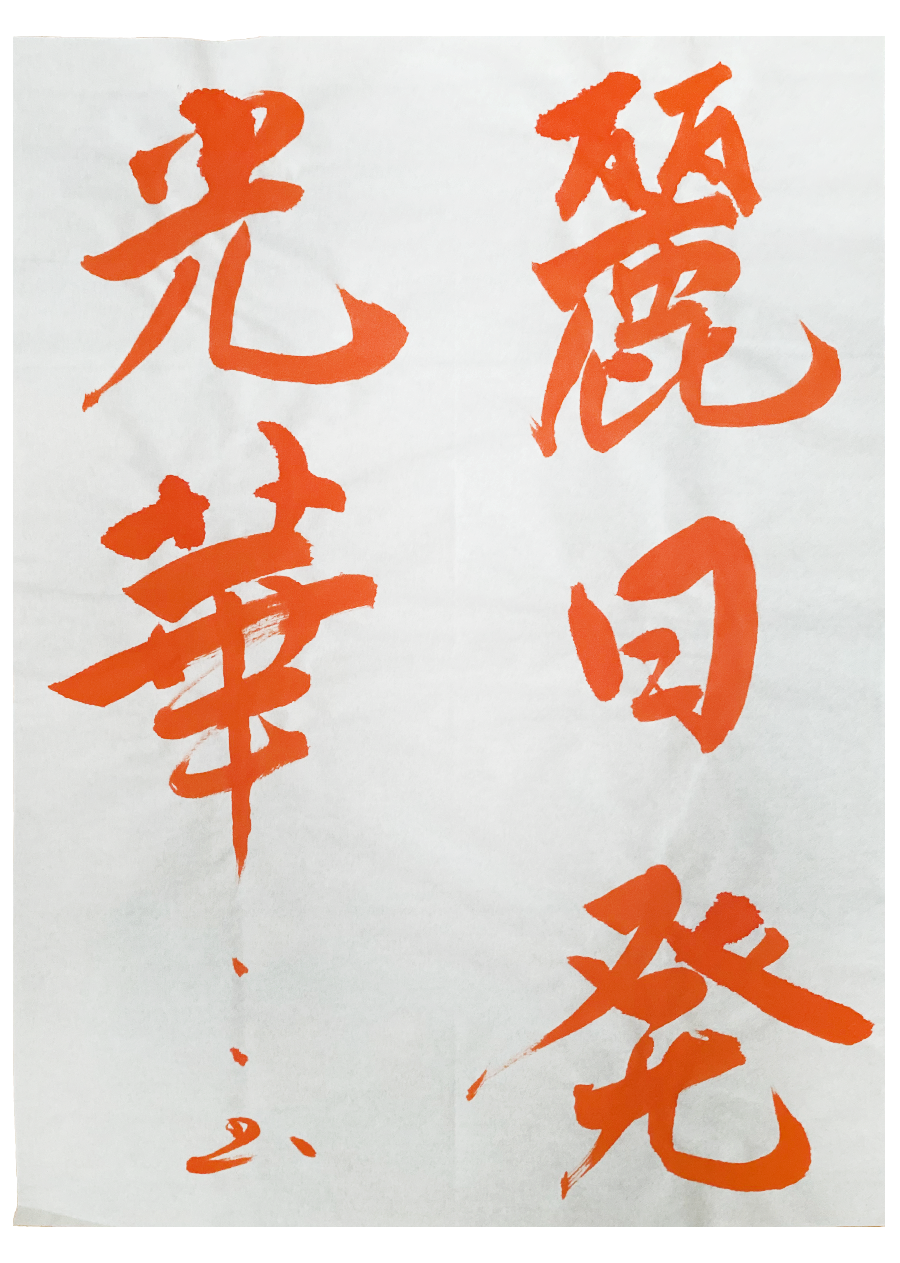 麗日発
光華